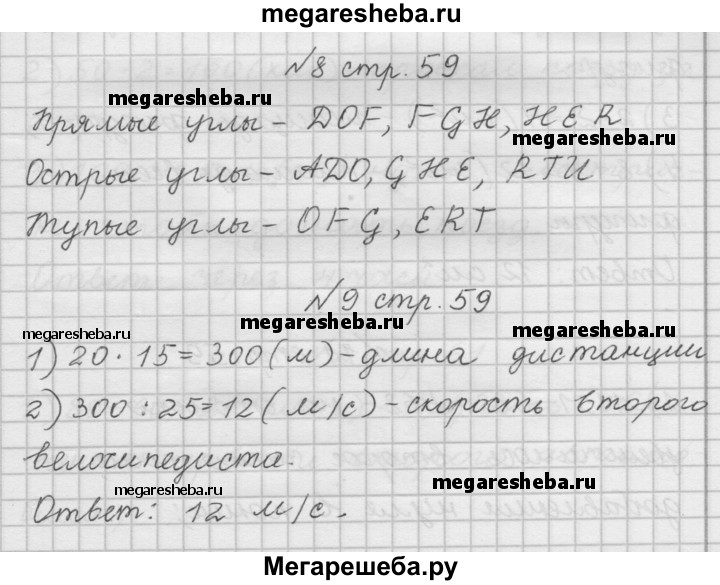 megaresheba.ru
№8 стр. 59
megaresheba.ru
Прямые углы - DOF, FGH, HER
megaresheba.ru
Острые углы - ADO, GHE, RTU
Тупые углы - OFG, ERT
№9 стр. 59
megaresheba.ru megaresheba.ru megaresheba.ru
1) 20 · 15 = 300 (м) - длина дистанции
2) 300 : 25 = 12 (м/с) - скорость второго
велосипедиста.
megaresheba.ru megaresheba.ru
Ответ: 12 м/с.
Мегарешеба.ру